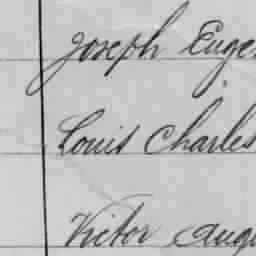 Joseph Euge
Louis Charles
Victor Augu